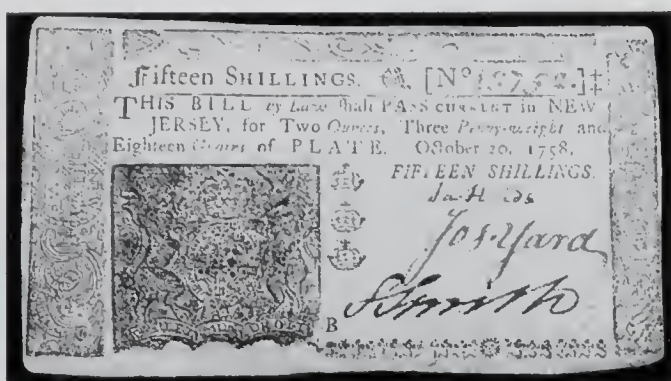 Fifteen SHILLINGS. [No
THIS BILL by Law shall PASS CURRENT in NEW-
JERSEY, for Two Ounces, Three Penny-weight and
Eighteen Grains of PLATE. October 20, 1758.
FIFTEEN SHILLINGS.
Jos: Yard
S Smith
B